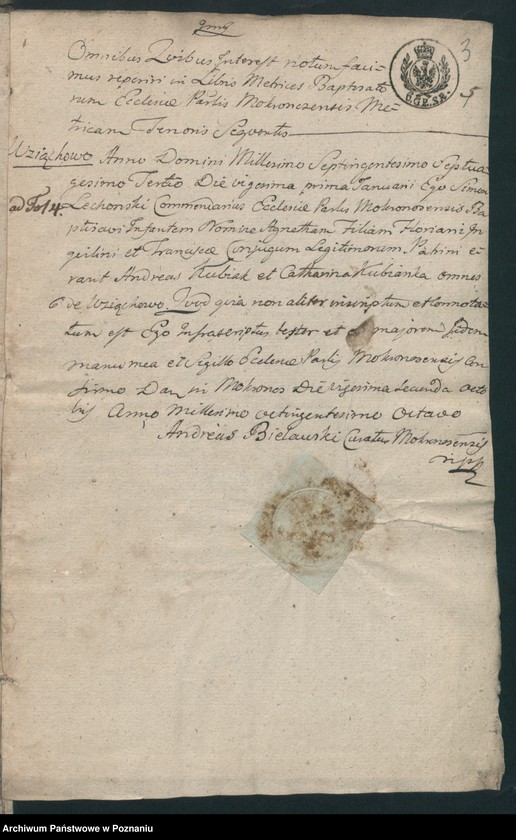 3
5
GGR.SR.
Omnibus Quibus Interest notum faci-
mus reperiri in Libris Metrices Baptisato
rum Ecclesiæ Parlis Mokronosensis Me-
tricam Tenoris Sequentis
Uziąchowo Anno Domini Millesimo Septingentesimo Septua
gesimo Tertio Die vigesima prima Januarii Ego Simon
ad No 14. Lechonski Commendarius Ecclesiæ Parlis Mokronosensis Ba
ptisavi Infantem Nomine Agnetham Filiam Floriani In
quilini et Franciscæ Conjugum Legitimorum Patrini e-
rant Andreas Kubiak et Catharina Kubianka omnes
6 de Uziąchowo Quod quia non aliter inscriptum et connota
tum est Ego Infrascriptus testor et majorem fidem
manu mea et Sigillo Ecclesiæ Parlis Mokronosensis Con
firmo Dan in Mokronos Die vigesima secunda Octo
bris Anno Millesimo octingentesimo Octavo
Andreas Bielawski Curatus Mokronosensis
mpp
Archiwum Państwowe w Poznaniu